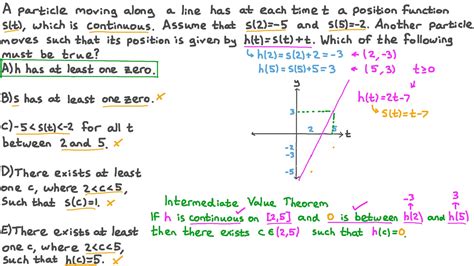 A particle moving along a line has at each time t a position function
s(t), which is continuous. Assume that s(2)=-5 and s(5)=-2. Another particle
moves such that its position is given by h(t)=s(t)+t. Which of the following
must be true?
h(2)=s(2)+2=-3 ← (2,-3)
A)h has at least one zero.
h(5)=s(5)+5=3 ← (5,3) t≥0
h(t)=2t-7
s(t)=t-7
B)s has at least one zero. ×
C)-5<s(t)<-2 for all t
between 2 and 5. ×
y
3
2 5 t
-2
-3
-5
D)There exists at least
one c, where 2<c<5,
Such that s(c)=1. ×
E)There exists at least
one c, where 2<c<5,
such that h(c)=5. ×
Intermediate Value Theorem
-3 3
If h is continuous on [2,5] and 0 is between h(2) and h(5)
then there exists c∈(2,5) such that h(c)=0.